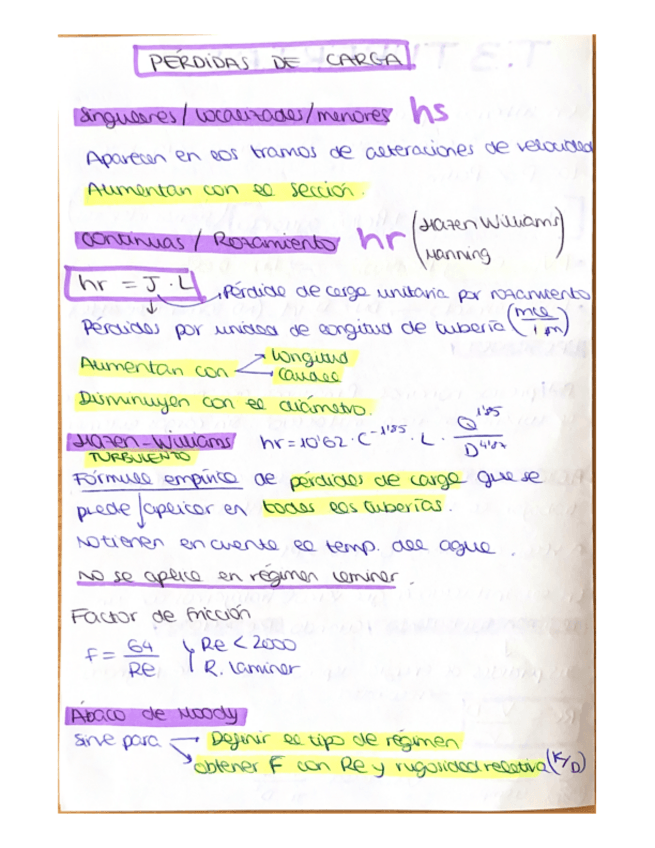 PÉRDIDAS DE CARGA
Singulares/Localizadas/menores hs
Aparecen en los tramos de alteraciones de velocidad
Aumentan con la sección.
Continuas / Rozamiento hr (Hazen Williams
Manning)
hr = J · L
Pérdida de carga unitaria por rozamiento
Pérdidas por unidad de longitud de tubería (mca/1m)
Aumentan con Longitud
Caudal
Disminuyen con el diámetro.
Hazen-Williams hr = 10'62 · C^-1'85 · L · Q^1'85/D^4'87
TURBULENTO
Fórmula empírica de pérdidas de carga que se
puede aplicar en todas las tuberías.
No tienen en cuenta la temp. del agua.
No se aplica en régimen laminar.
Factor de fricción
f = 64/Re Re < 2000
R. Laminar
Ábaco de Moody
Sirve para Definir el tipo de régimen
obtener F con Re y rugosidad relativa (K/D)